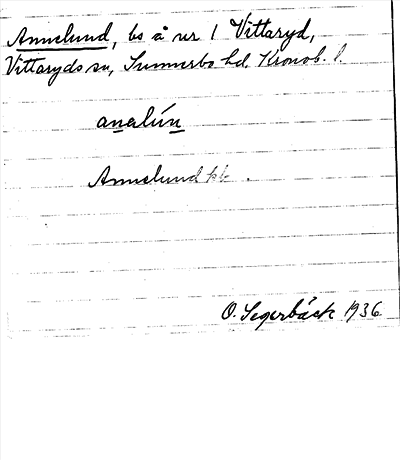 Annelund, bs å nr 1 Vittaryd,
Vittaryds sn, Sunnerbo hd, Kronob. l.
analún
Annelund
O. Segerbäck 1936.